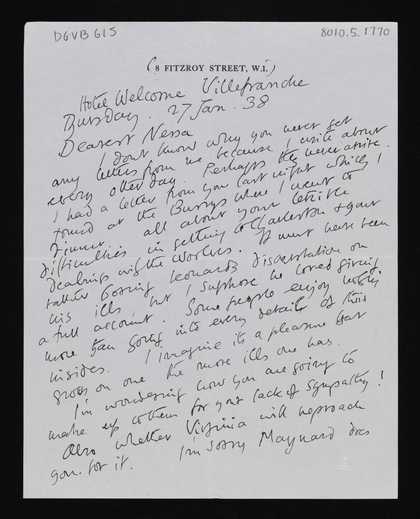 DGVB 615
8010.5.1770
(8 FITZROY STREET, W.1.)
Hotel Welcome Villefranche
Thursday. 27 Jan. 38
Dearest Nessa
I don't know why you never get
any letters from me because I write about
every other day. Perhaps they never arrive.
I had a letter from you last night which I
found at the Bussys when I went to
dinner all about your terrible
difficulties in getting to Charleston & your
dealings with the Woolves. It must have been
rather boring Leonards dissertation on
his ills, but I suppose he loved giving
a full account. Some people enjoy nothing
more than going into every detail of their
insides. I imagine its a pleasure that
grows on one the more ills one has.
I'm wondering how you are going to
make up to them for your lack of sympathy!
Also whether Virginia will reproach
you for it. I'm sorry Maynard does